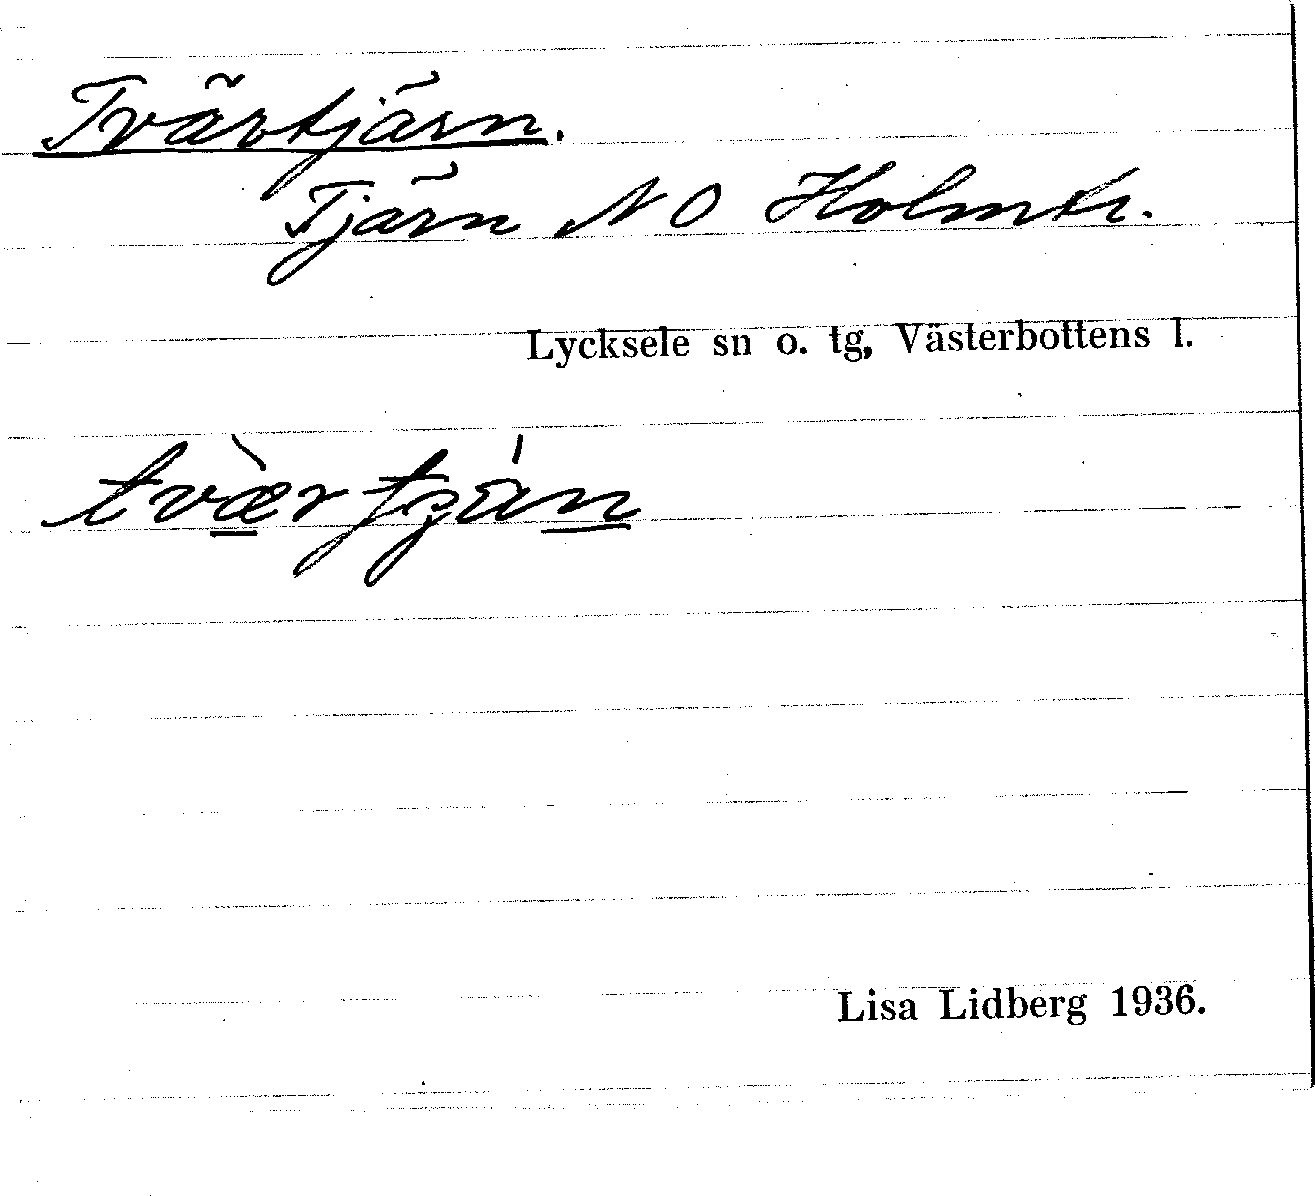 Tvärtjärn.
Tjärn NO Holmtr.
Lycksele sn o. tg, Västerbottens l.
Lisa Lidberg 1936.